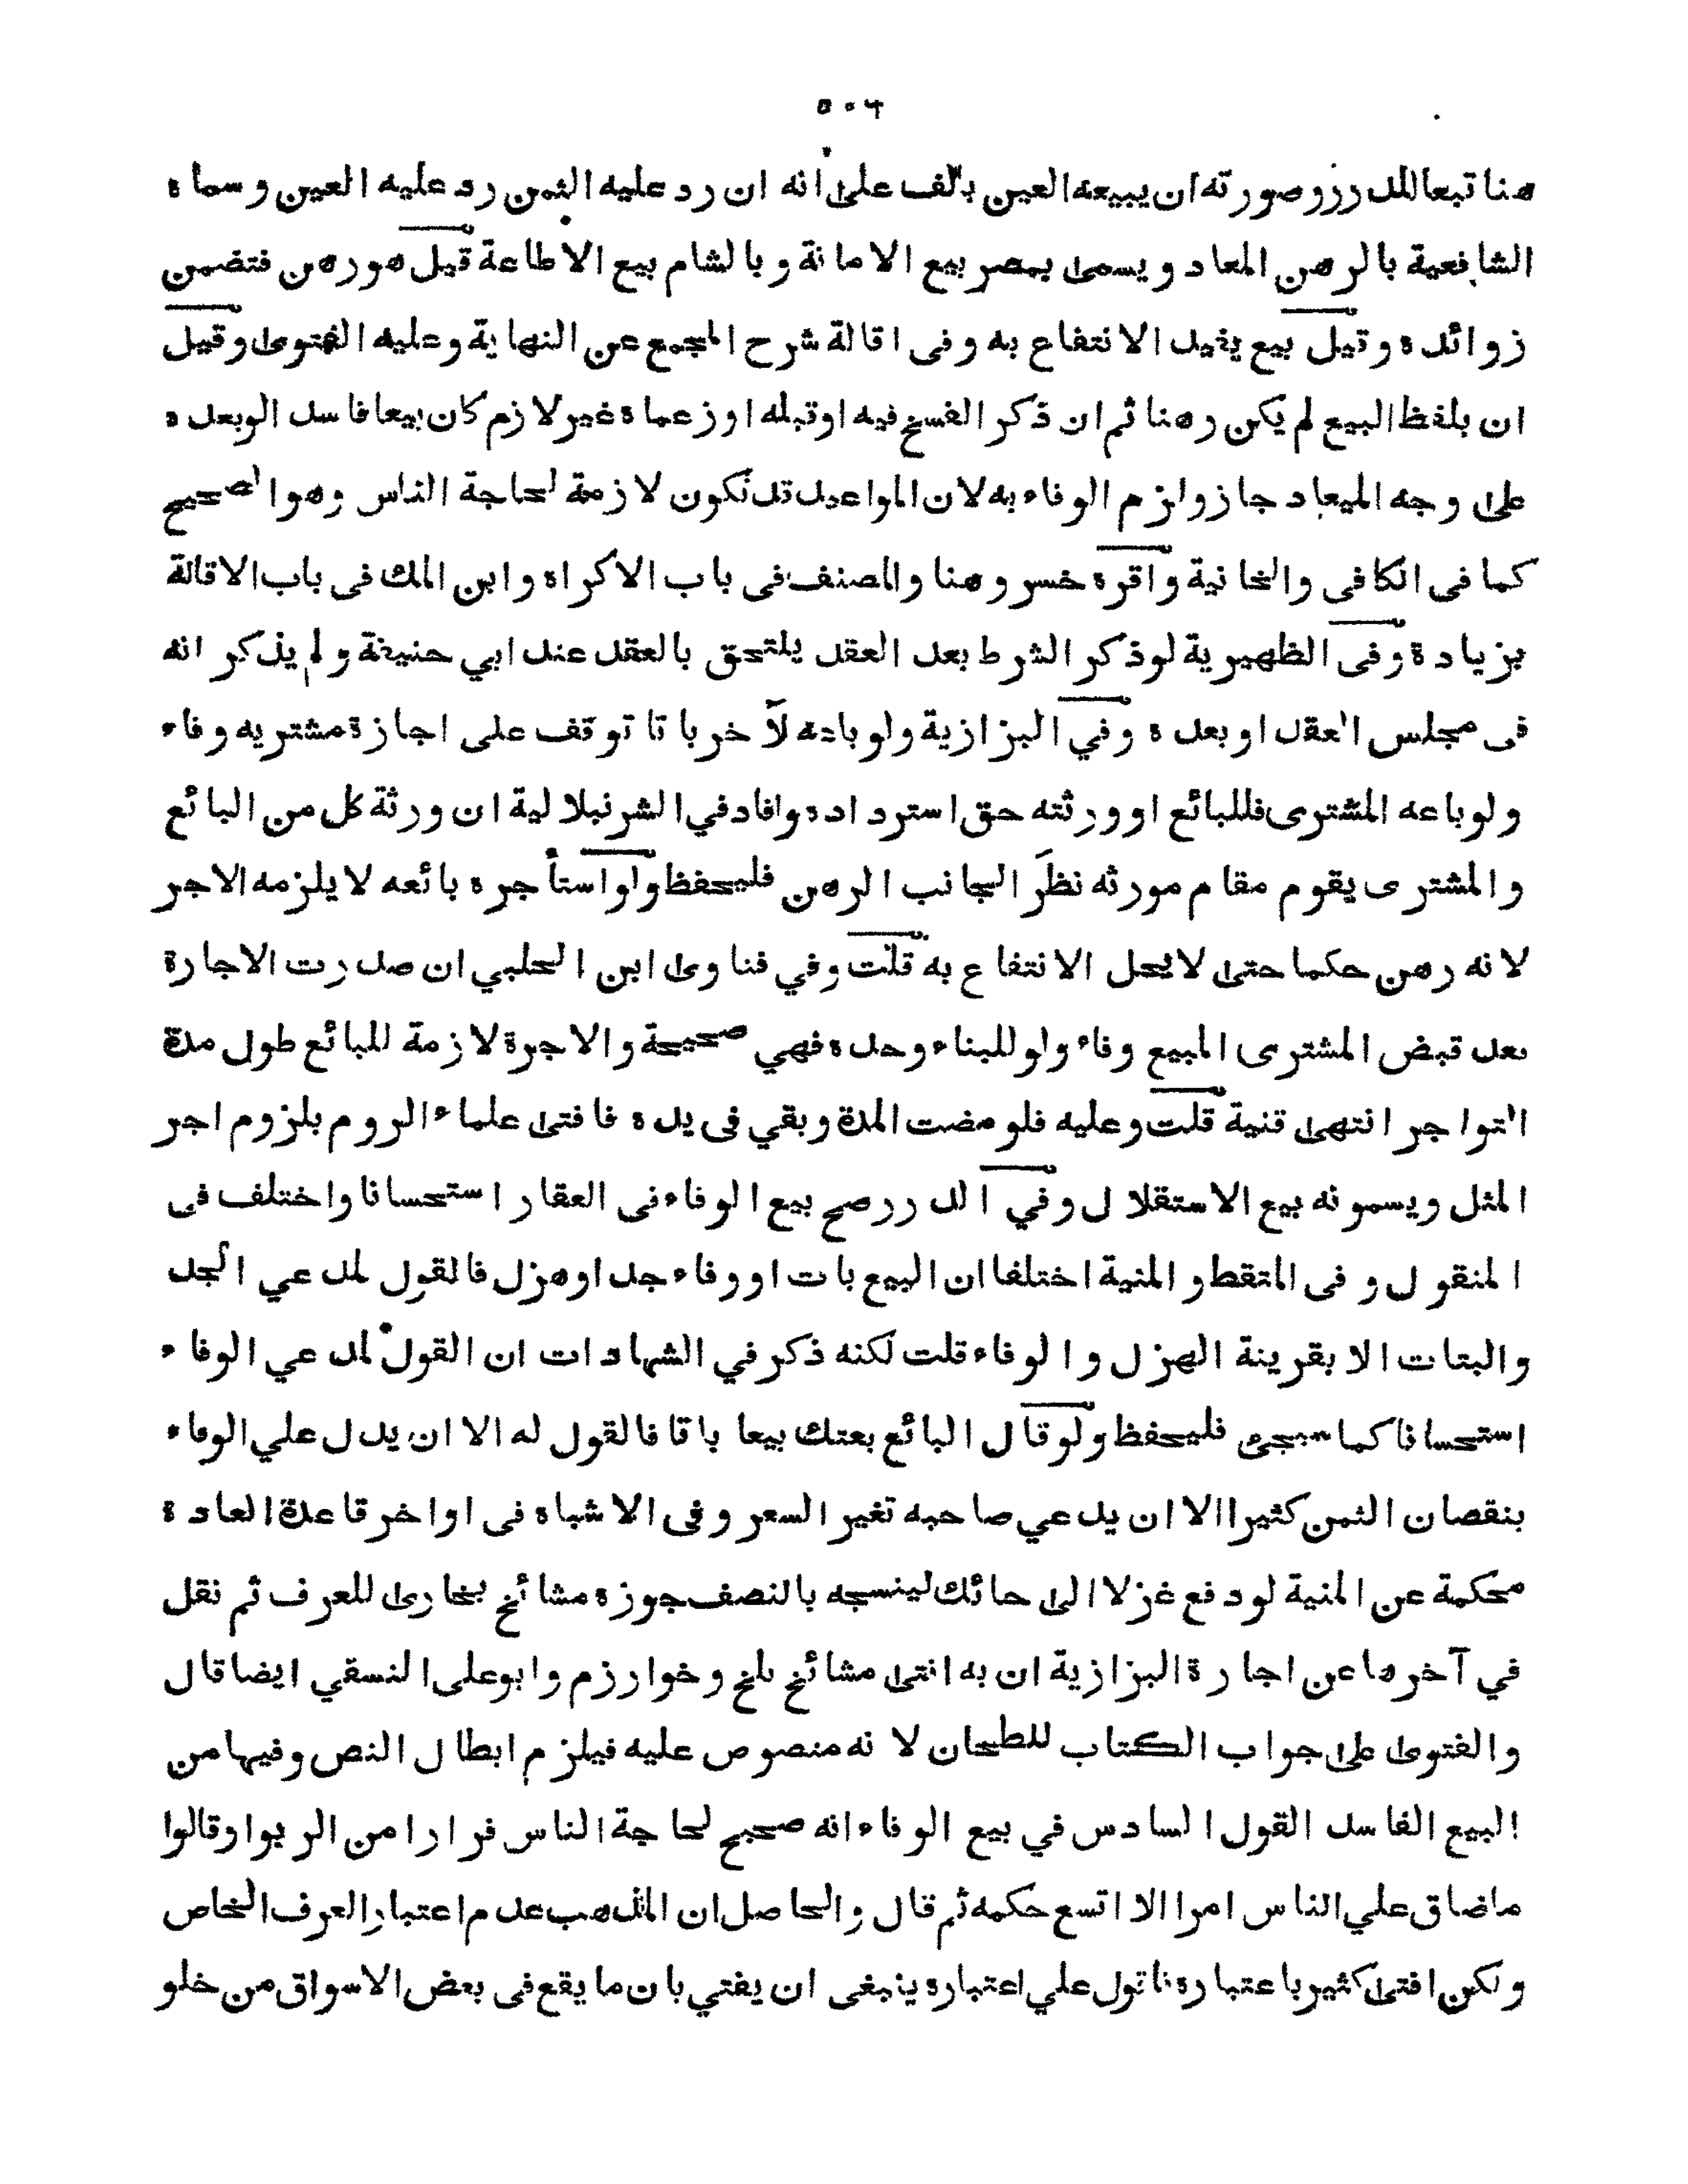 ٥٠٦
هنا تبعا للدرر وصورته ان يبيعه العين بالف على انه ان رد عليه الثمن رد عليه العين وسماه
الشافعية بالرهن المعاد ويسمى بمصر بيع الامانة وبالشام بيع الاطاعة قيل هو رهن فتضمن
زوائده وقيل بيع يفيد الانتفاع به وفى اقالة شرح المجمع عن النهاية وعليه الفتوى وقيل
ان بلفظ البيع لم يكن رهنا ثم ان ذكر الفسخ فيه او قبله او زعماه غير لازم كان بيعا فاسدا ولو بعده
على وجه الميعاد جاز ولزم الوفاء به لان المواعيد قد تكون لازمة لحاجة الناس وهو الصحيح
كما فى الكافى والخانية واقره خسر وهنا والمصنف فى باب الاكراه وابن الملك فى باب الاقالة
بزيادة وفى الظهيرية لو ذكر الشرط بعد العقد يلتحق بالعقد عند ابي حنيفة ولم يذكر انه
فى مجلس العقد او بعده وفي البزازية ولو باعه لآخر باتا توقف على اجازة مشتريه وفاء
ولو باعه المشترى فللبائع او ورثته حق استرداده وافاد في الشرنبلالية ان ورثة كل من البائع
والمشترى يقوم مقام مورثه نظرا لجانب الرهن فليحفظ ولو استأجره بائعه لا يلزمه الاجر
لانه رهن حكما حتى لا يحل الانتفاع به قلت وفي فتاوى ابن الحلبي ان صدرت الاجارة
بعد قبض المشترى المبيع وفاء ولو للبناء وحده فهي صحيحة والاجرة لازمة للبائع طول مدة
التواجر انتهى قنية قلت وعليه فلو مضت المدة وبقي فى يده فافتى علماء الروم بلزوم اجر
المثل ويسمونه بيع الاستقلال وفي الدرر صح بيع الوفاء فى العقار استحسانا واختلف فى
المنقول وفى الملتقط والمنية اختلفا ان البيع بات او وفاء جد او هزل فالقول لمدعي الجد
والبتات الا بقرينة الهزل والوفاء قلت لكنه ذكر في الشهادات ان القول لمدعي الوفاء
استحسانا كما سيجئ فليحفظ ولو قال البائع بعتك بيعا باتا فالقول له الا ان يدل علي الوفاء
بنقصان الثمن كثيرا الا ان يدعي صاحبه تغير السعر وفى الاشباه فى اواخر قاعدة العادة
محكمة عن المنية لو دفع غزلا الى حائك لينسجه بالنصف جوزه مشائخ بخارى للعرف ثم نقل
في آخرها عن اجارة البزازية ان به افتى مشائخ بلخ وخوارزم وابو على النسقي ايضا قال
والفتوى على جواب الكتاب للطحان لانه منصوص عليه فيلزم ابطال النص وفيها من
البيع الفاسد القول السادس في بيع الوفاء انه صحيح لحاجة الناس فرارا من الربوا وقالوا
ماضاق علي الناس امرا الا اتسع حكمه ثم قال والحاصل ان المذهب عدم اعتبار العرف الخاص
ولكن افتى كثير باعتباره فاقول علي اعتباره ينبغى ان يفتي بان ما يقع فى بعض الاسواق من خلو